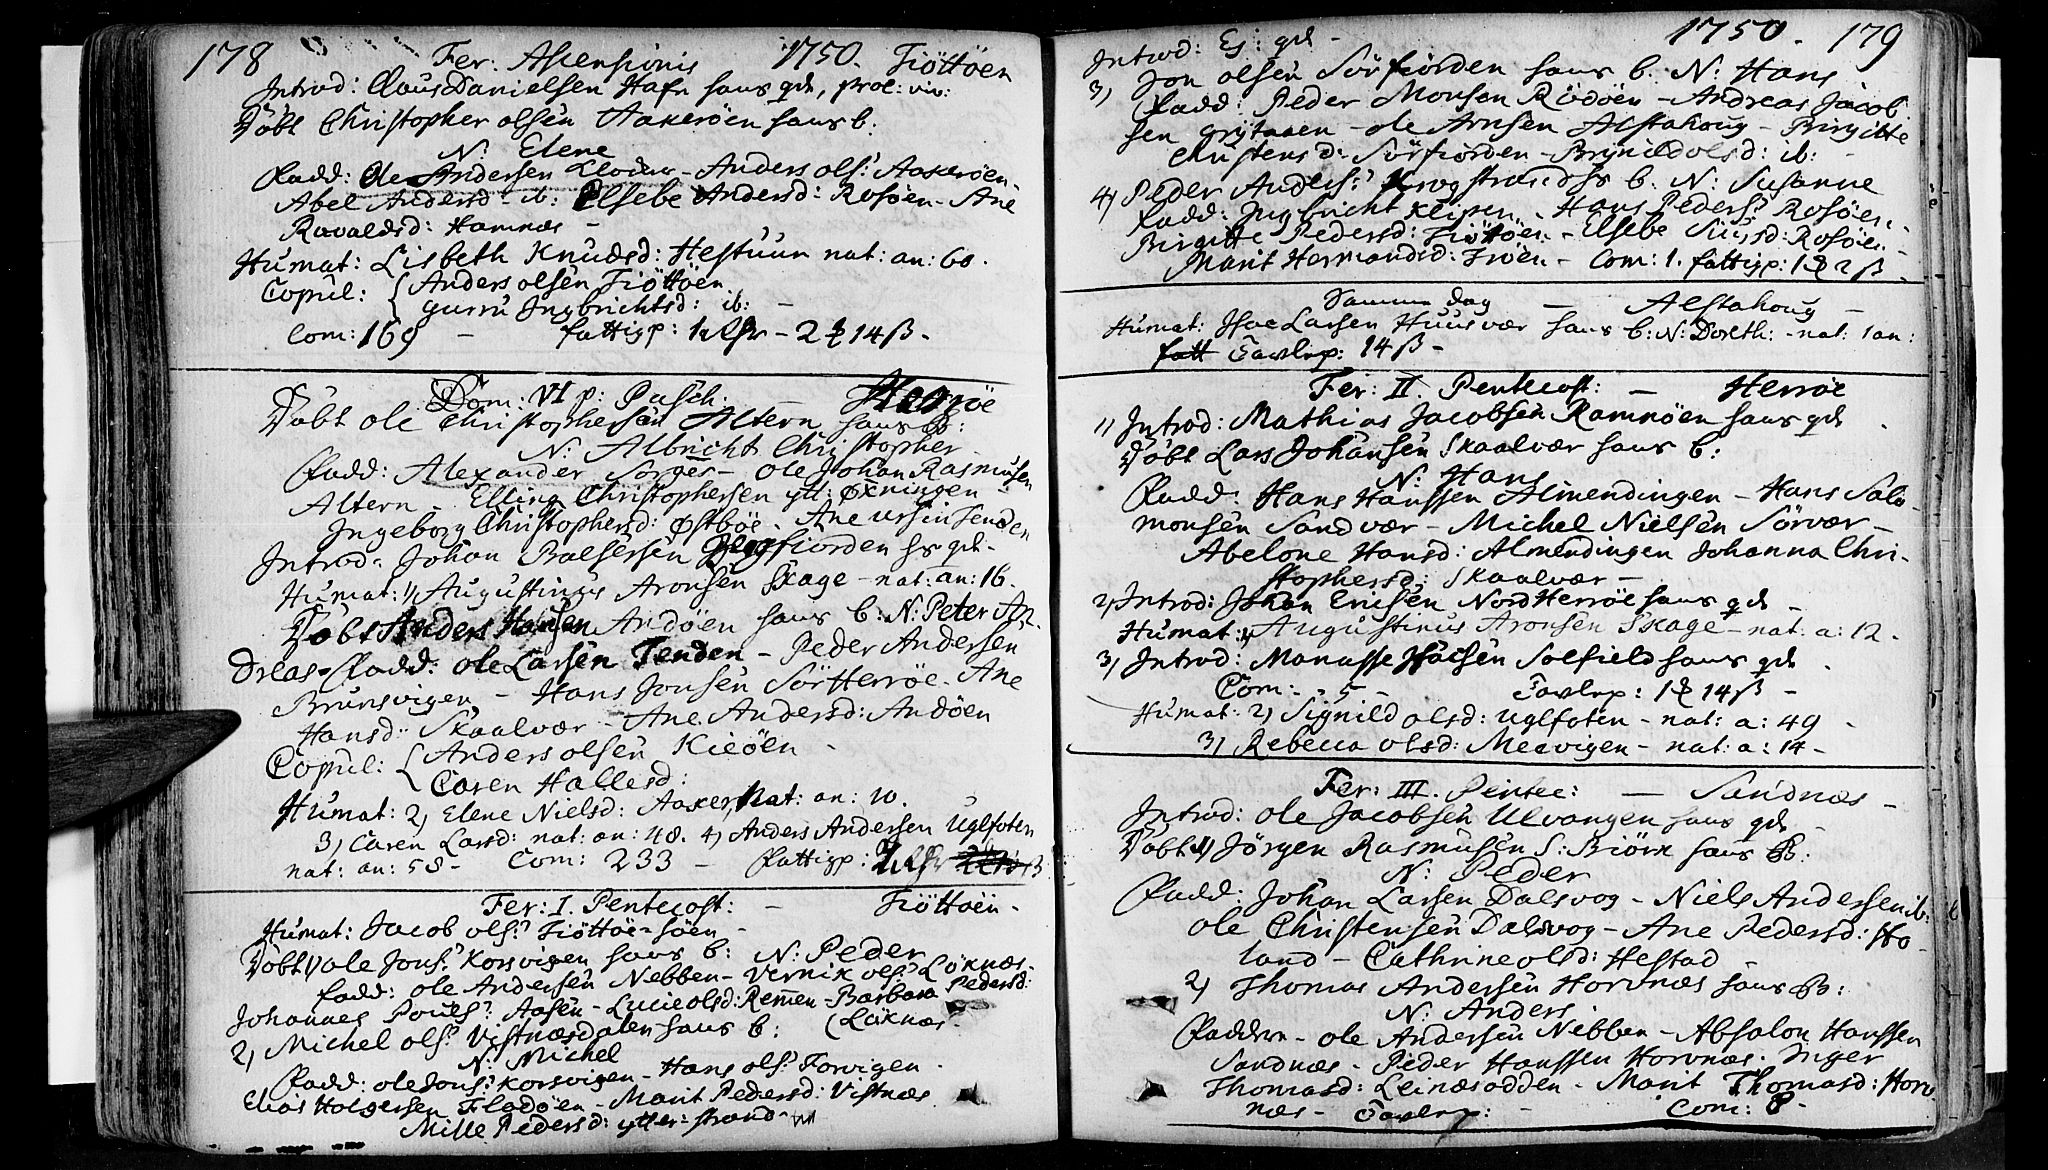 178 Fer: Ascensionis 1750. Tiöttöen
Introd: Claus Danielsen Hafn hans qde, prol: viv:
Döbt Christopher olsen Aakeröen hans b:
N: Elene
Fadd: Ole Andersen - Anders ols: Aakeröen -
Abel Andersd - ib: Elsebe Andersd: Rosöen - Ane
Ravaldsd: Hamnæs -
Humat: Lisbeth Knudsd: Hestuun nat: an: 60.
Copul: { Anders olsen Tiöttöen
Gurru Ingbrichtsd: ib: -
Com: 169 - fattigp: - 2 14 ß -
Dom: VI p: Pasch: - Herröe
Döbt ole Christophersen Altern hans B:
N: Albricht Christopher
Fadd: Alexander Sorger - Ole Johan Rasmusen
Altern - Elling Christophersen ytt: Øxningen -
Ingeborg Christophersd: Østböe - Ane ursin Tenden
Introd: Johan Balsersen fiorden hs qde -
Humat: 1) Augustinus Aronsen Skage - nat: an: 16.
Döbt Anders Hansen Andöen hans b: N: Peter An
dreas - Fadd: ole Larsen Tenden - Peder Andersen
Brunsvigen - Hans Jonsen Sör Herröe - Ane
Hansd: Skaalvær - Ane Andersd: Andöen
Copul: { Anders olsen Kieöen -
Caren Hallesd:
Humat: 2) Elene Nielsd: Aaker, nat: an: 10.
3) Caren Larsd: nat: an: 48. 4) Anders Andersen Uglfoten
nat: an: 58 - Com: 233 - Fattigp: 2
Fer: I. Pentecost: - Tiöttöen -
Humat: Jacob ols: Tiöttöe-söen -
Döbt 1) ole Jons: Korsvigen hans b: N: Peder
fadd: ole Andersen Nebben - Vernik ols: Löknæs -
Johannes Pouls: Aasen - Lucie olsd: Remen - Barbara Pedersd:
2) Michel ols: Vistnæsdalen hans b: (Löknæs -
N: Michel
Fadd: ole Jons: Korsvigen - Hans ols: Forvigen -
Elias Holgersen Fladöen - Marit Pedersd: Vistnæs
Mille Pedersd: ytter-strand -
1750. 179
Introd: Ej: qde -
3) Jon olsen Sörfiorden hans b. N: Hans
Fadd: Peder Monsen Rödöen - Andreas Jacob
sen Grytaaen - ole Arnsen Alstahoug - Birgitte
Christensd: Sörfiorden - Brynild olsd: ib: -
4) Peder Anders: Krogstrand hs b. N: Susanne
Fadd: Ingbricht Klipen - Hans Peders: Rosöen -
Birgitte Pedersd: Tiöttöen - Elsebe Siursd: Rosöen -
Marit Hermandsd: Tröen - Com: 1. fattigp: 1 2 ß -
Samme dag - Alstahoug -
Humat: Isac Larsen Huusvær hans b: N: Doreth: - nat: 1 an:
fatt Tavlep: 14 ß -
Fer: II. Pentecost: - Herröe
1) Introd: Mathias Jacobsen Ramnöen hans qde -
Döbt Lars Johansen Skaalvær hans b:
N: Hans
Fadd: Hans Hanssen Almendingen - Hans Salo
monsen Sandvær - Michel Nielsen Sörvær -
Abelone Hansd: Almendingen Johanna Chri-
stophersd: Skaalvær -
2) Introd: Johan Ericsen Nord Herröe hans qde -
Humat: 1) Augustinus Aronsen Skage - nat: a: 12.
3) Introd: Manasse Hansen Solfield hans qde -
Com: - 5 - Tavlep: 1 14 ß -
Humat: 2) Signild olsd: Uglfoten - nat: a: 49 -
3) Rebecca olsd: Medvigen - nat: a: 14 -
Fer: III. Pentec: - Sandnæs -
Introd: Ole Jacobsen Ulvangen hans qde -
Döbt 1) Jörgen Rasmusen S: Biörn hans B:
N: Peder
Fadd: Johan Larsen Dalsvog - Niels Andersen ib:
ole Christensen Dalsvog - Ane Pedersd: Sto
land - Cathrine olsd: Hestad -
2) Thomas Andersen Horvnæs hans B:
N: Anders
Faddere - ole Andersen Nebben - Absalon Hanssen
Sandnæs - Peder Hanssen Horvnæs - Inger
Thomasd: Leinæsodden - Marit Thomasd: Horv
næs - Tavlep: - Com: 8 -